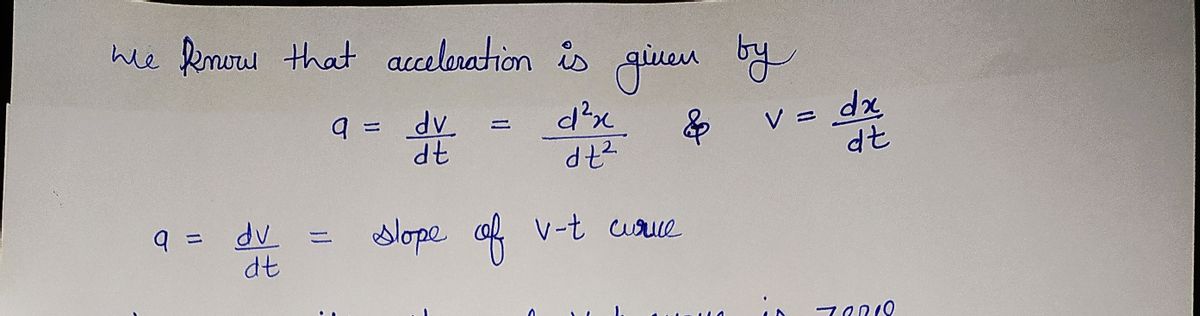 We know that acceleration is given by
a = dv/dt = d²x/dt² & v = dx/dt
a = dv/dt = slope of v-t curve